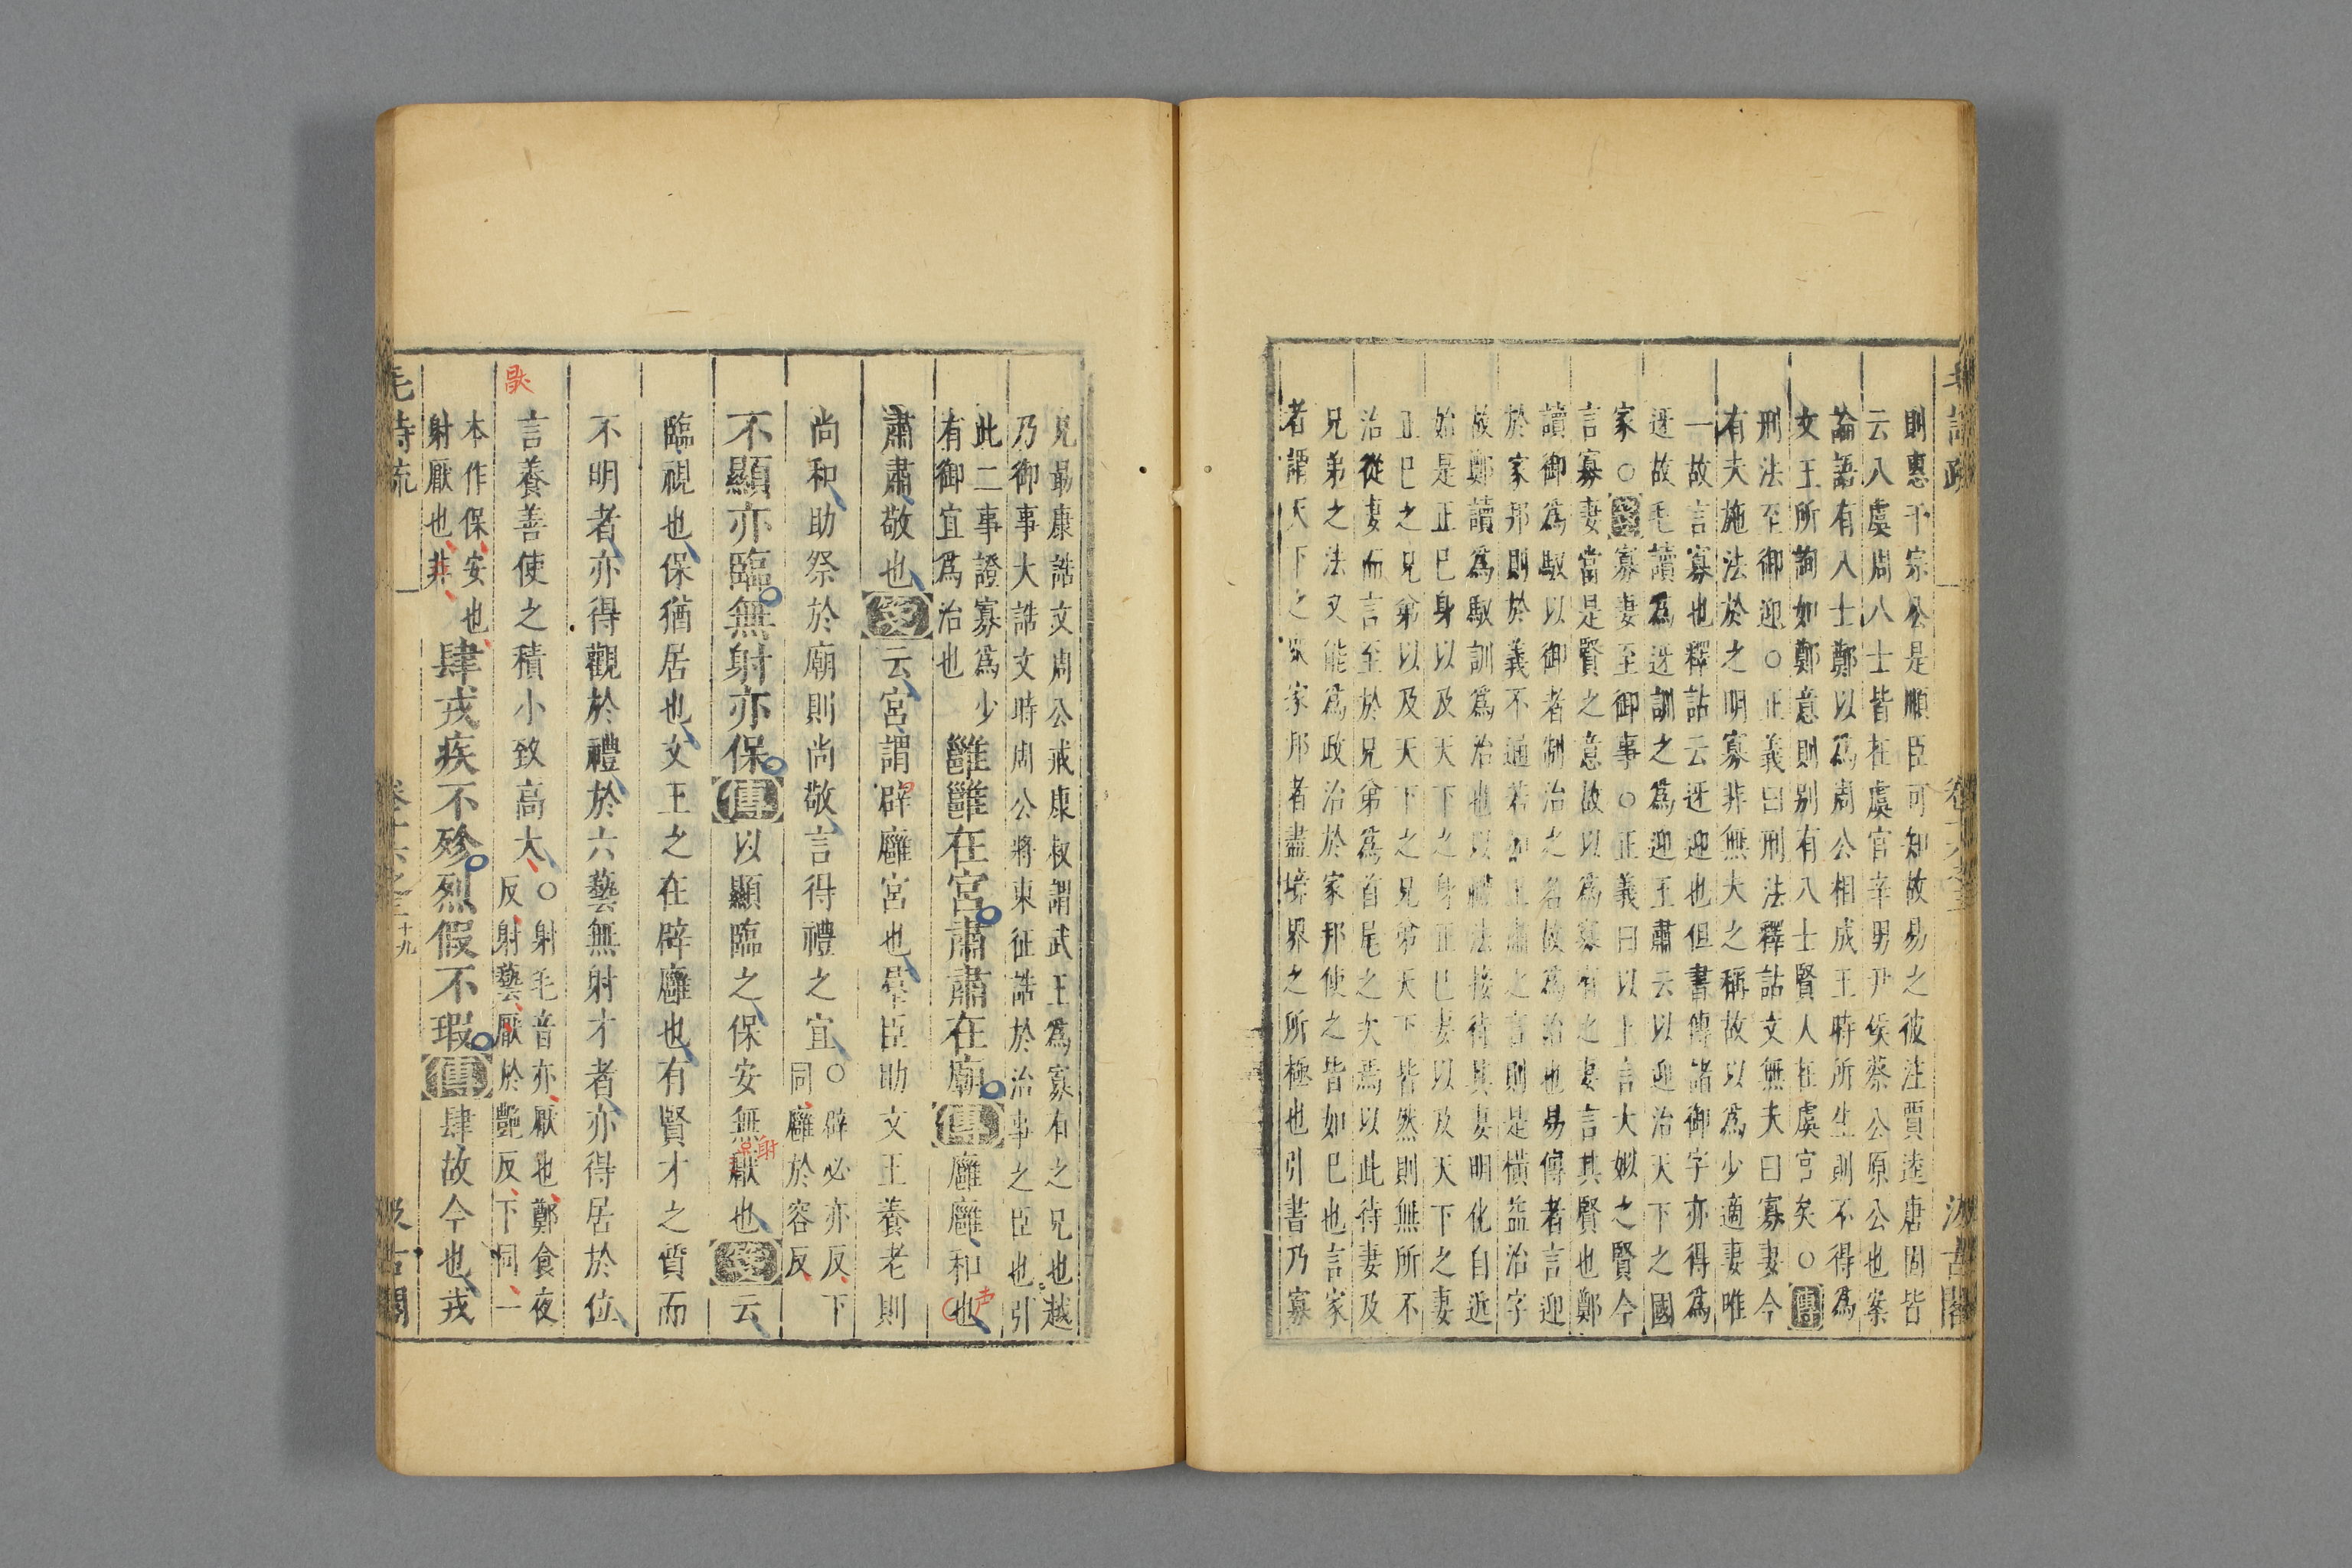 則惠于宗公是順臣可知故易之彼注賈逵唐固皆
云八虞周八士皆在虞官辛男尹佚蔡公原公也案
論語有八士鄭以爲周公相成王時所生則不得爲
文王所詢如鄭意則別有八士賢人在虞官矣○傳
刑法至御迎○正義曰刑法釋詁文無夫曰寡妻今
有夫施法於之明寡非無夫之稱故以爲少適妻唯
一故言寡也釋詁云迓迎也但書傳諸御字亦得爲
迓故毛讀爲迓訓之爲迎王肅云以迎治天下之國
家○箋寡妻至御事○正義曰以上言大姒之賢今
言寡妻當是賢之意故以爲寡有之妻言其賢也鄭
讀御爲馭以御者制治之名故爲治也易傳者言迎
於家邦則於義不通若如王肅之言則是橫益治字
故鄭讀爲馭訓爲治也以禮法接待其妻明化自近
始是正已身以及天下之身正已妻以及天下之妻
正已之兄弟以及天下之兄弟天下皆然則無所不
治從妻而言至於兄弟爲首尾之次焉以此待妻及
兄弟之法又能爲政治於家邦使之皆如已也言家
者謂天下之衆家邦者盡境界之所極也引書乃寡
兄最康誥文周公戒康叔謂武王爲寡有之兄也越
乃御事大誥文時周公將東征誥於治事之臣也引
此二事證寡爲少
有御宜爲治也
雝雝在宮肅肅在廟傳廱廱和也
肅肅敬也箋云宮謂辟廱宮也羣臣助文王養老則
尚和助祭於廟則尚敬言得禮之宜○辟必亦反下
同廱於容反
不顯亦臨無射亦保傳以顯臨之保安無厭也箋云
臨視也保猶居也文王之在辟廱也有賢才之質而
不明者亦得觀於禮於六藝無射才者亦得居於位
言養善使之積小致高大○射毛音亦厭也鄭食夜
反射藝厭於艷反下同一
本作保安也
射厭也非
肆戎疾不殄烈假不瑕傳肆故今也戎
毛詩疏
卷十六之三
十九
汲古閣